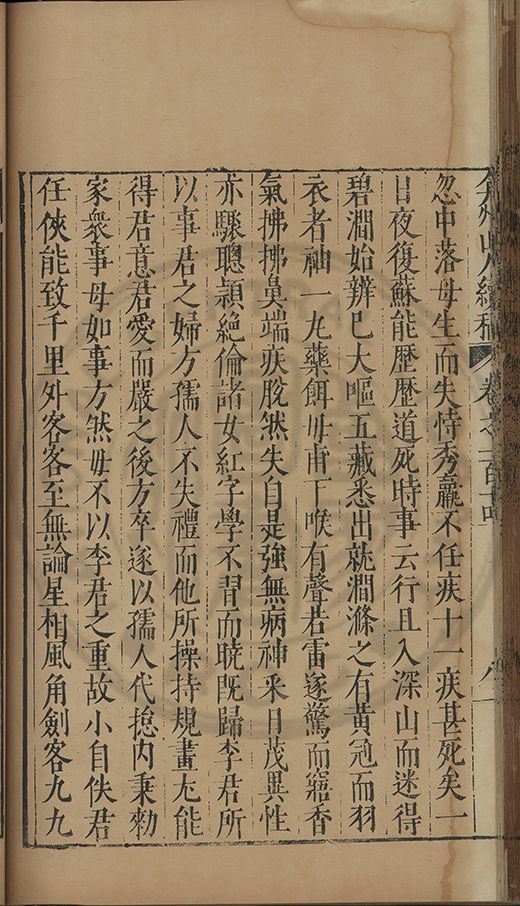 弇州山人續稿 卷之一百十四 八
忽中落母生而失恃秀羸不任疾十一疾甚死矣一
日夜復蘇能歷歷道死時事云行且入深山而迷得
碧澗始辨巳大嘔五藏悉出就澗滌之有黃冠而羽
衣者袖一九藥餌毋甫下喉有聲若雷遂驚而寤香
氣拂拂鼻端疾脫然失自是強無病神釆日茂異性
亦驟聰穎絕倫諸女紅字學不習而曉旣歸李君所
以事君之婦方孺人不失禮而他所操持規畫尤能
得君意君愛而嚴之後方卒遂以孺人代揔内秉勑
家衆事母如事方然毋不以李君之重故小自佚君
任俠能致千里外客客至無論星相風角劍客九九